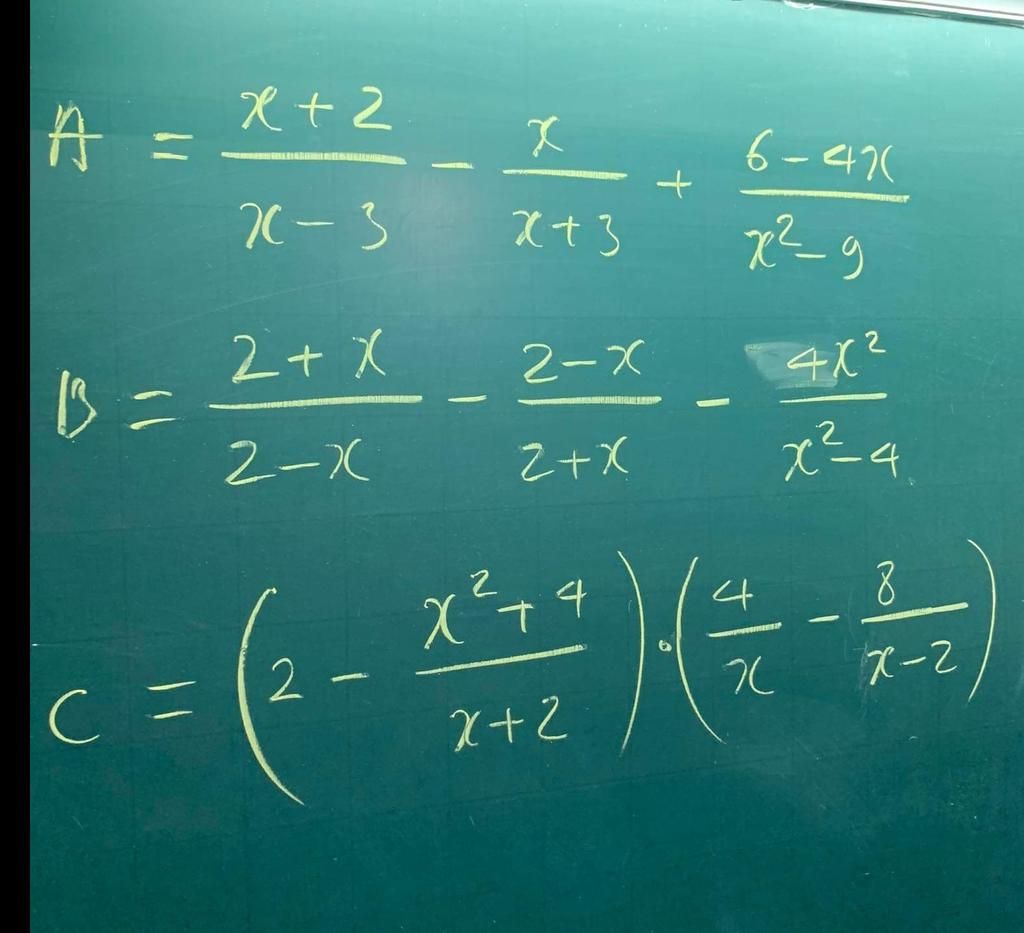 A = \frac{x+2}{x-3} - \frac{x}{x+3} + \frac{6-4x}{x^2-9}
B = \frac{2+x}{2-x} - \frac{2-x}{2+x} - \frac{4x^2}{x^2-4}
C = \left(2 - \frac{x^2+4}{x+2}\right) \cdot \left(\frac{4}{x} - \frac{8}{x-2}\right)